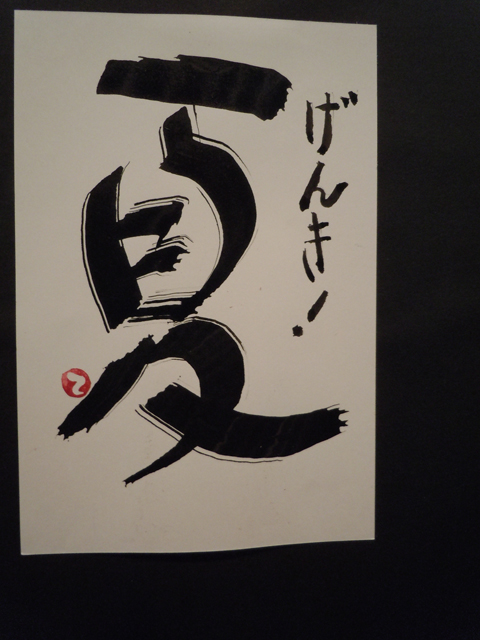 げんき!
夏